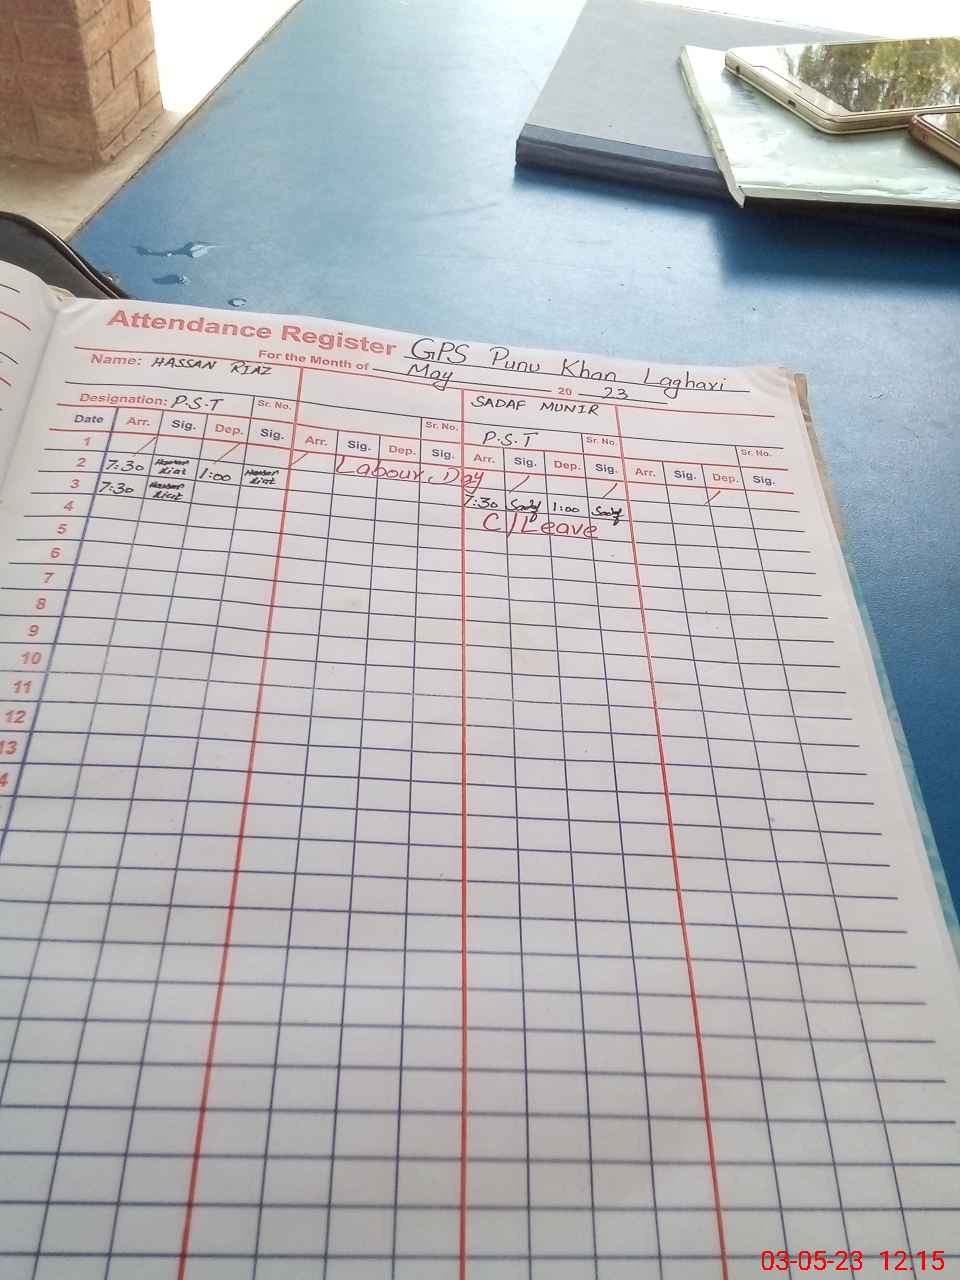 Attendance Register GPS Punu Khan Laghari
For the Month of May 20 23
Name: HASSAN RIAZ
SADAF MUNIR
Designation: P.S.T Sr. No. Sr. No. P.S.T Sr. No. Sr. No.
Date Arr. Sig. Dep. Sig. Arr. Sig. Dep. Sig. Arr. Sig. Dep. Sig. Arr. Sig. Dep. Sig.
1 Labour Day
2 7:30 Hassan Riaz 1:00 Hassan Riaz 7:30 Sadaf 1:00 Sadaf
3 7:30 Hassan Riaz C/Leave
4
5
6
7
8
9
10
11
12
13
4
03-05-23 12:15